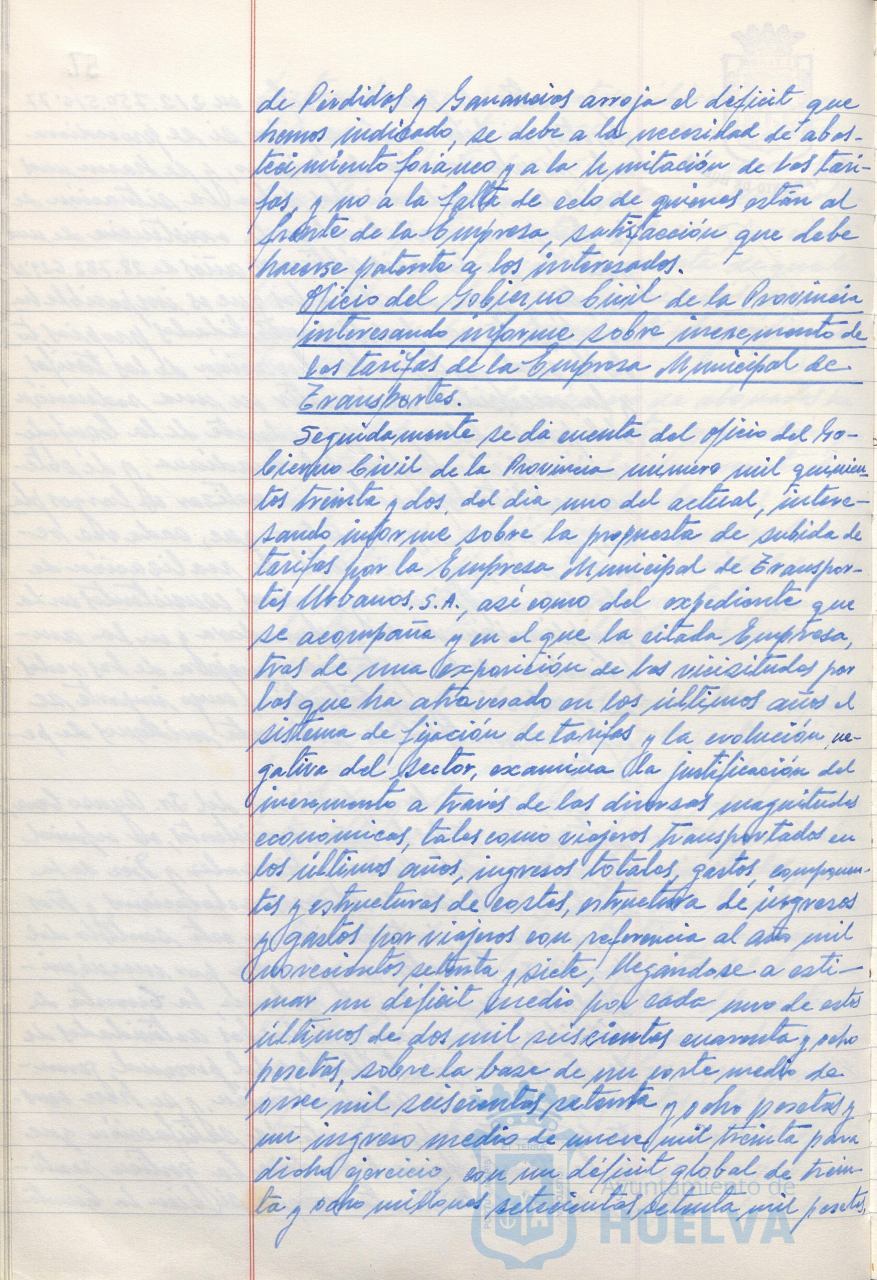 de Pérdidas y Ganancias arroja el déficit que
hemos indicado, se debe a la necesidad de abas-
tecimiento foráneo y a la limitación de las tari-
fas, y no a la falta de celo de quienes están al
frente de la Empresa, satisfacción que debe
hacerse patente a los interesados.
Oficio del Gobierno Civil de la Provincia
interesando informe sobre incremento de
las tarifas de la Empresa Municipal de
Transportes.
Seguidamente se da cuenta del oficio del Go-
bierno Civil de la Provincia número mil quinien-
tos treinta y dos, del dia uno del actual, intere-
sando informe sobre la propuesta de subida de
tarifas por la Empresa Municipal de Transpor-
tes Urbanos, S.A., así como del expediente que
se acompaña y en el que la citada Empresa,
tras de una exposición de las vicisitudes por
las que ha atravesado en los últimos años el
sistema de fijación de tarifas y la evolución ne-
gativa del sector, examina la justificación del
incremento a través de las diversas magnitudes
económicas, tales como viajeros transportados en
los últimos años, ingresos totales, gastos, componen-
tes y estructuras de costes, estructura de ingresos
y gastos por viajeros con referencia al año mil
novecientos setenta y siete, llegándose a esti-
mar un déficit medio por cada uno de estos
últimos de dos mil seiscientas cuarenta y ocho
pesetas, sobre la base de un coste medio de
once mil seiscientas setenta y ocho pesetas y
un ingreso medio de nueve mil treinta para
dicho ejercicio, con un déficit global de trein-
ta y ocho millones setecientas setenta mil pesetas,
Ayuntamiento de
HUELVA